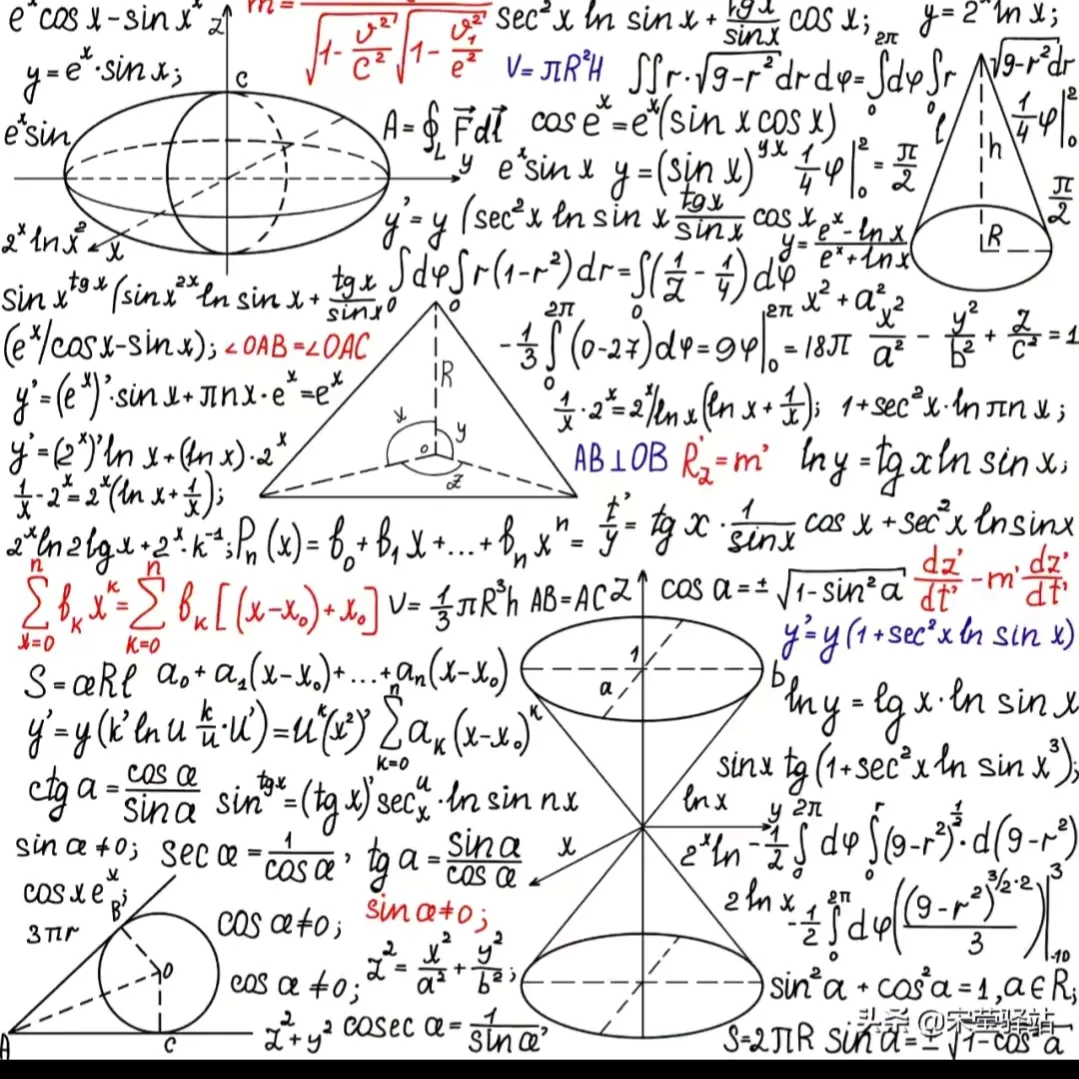 e^x cos x - sin x^x
y = e^x · sin x;
e^x sin
2^x ln x^2
z
c
y
x
m =
√(1 - v^2/c^2) √(1 - v_1^2/e^2)
sec^2 x ln sin x + tg x/sin x cos x;
y = 2^x ln x;
V = πR^2H
∬ r · √(9 - r^2) dr dφ = ∫_0^2π dφ ∫_0 r √(9 - r^2) dr
A = ∮_L F⃗ dl⃗
cos e^x = e^x (sin x cos x)
1/4 φ |_0^2
e^x sin x y = (sin x)^yx 1/4 φ |_0^2 = π/2
π/2
l
h
R
y' = y (sec^2 x ln sin x tg x/sin x cos x
y = (e^x - ln x)/(e^x + ln x)
sin x^tg x (sin x^2x ln sin x + tg x/sin x
∫_0 dφ ∫_0 r (1 - r^2) dr = ∫_0 (1/2 - 1/4) dφ
x^2 + a^2 x^2
(e^x/cos x - sin x); ∠OAB = ∠OAC
-1/3 ∫_0^2π (0 - 27) dφ = 9φ |_0^2π = 18π
x^2/a^2 - y^2/b^2 + z/c^2 = 1
y' = (e^x)' · sin x + πnx · e^x = e^x
R
x
y
o
z
1/x · 2^x = 2^x/ln x (ln x + 1/x); 1 + sec^2 x · ln πn x;
y' = (2^x)' ln x + (ln x) · 2^x
AB ⊥ OB R'_2 = m' ln y = tg x ln sin x;
1/x - 2^x = 2^x (ln x + 1/x);
2^x ln 2 lg x + 2^x · k^-1; P_n (x) = b_0 + b_1 x + ... + b_n x^n =
t'/y = tg x · 1/sin x cos x + sec^2 x ln sin x
∑_x=0^n b_k x^k = ∑_k=0^n b_k [(x - x_0) + x_0]
V = 1/3 πR^3h AB = AC
z
cos a = ± √(1 - sin^2 a) dz'/dt' - m' dz'/dt'
y' = y (1 + sec^2 x ln sin x)
S = æRℓ a_0 + a_1 (x - x_0) + ... + a_n (x - x_0)
1
a
b
ln y = lg x · ln sin x
y' = y (k' ln u k/u · u') = u^k (x^2)' ∑_k=0^n a_k (x - x_0)^k
sin x tg (1 + sec^2 x ln sin x^3);
ctg a = cos æ/sin a sin^tg x = (tg x)' sec_x^u · ln sin nx
ln x
y
x
2^x ln -1/2 ∫_0^2π dφ ∫_0^r (9 - r^2)^1/2 · d(9 - r^2)
sin æ ≠ 0; sec æ = 1/cos æ, tg a = sin a/cos æ
cos x e^x;
3πr
cos æ ≠ 0; sin æ ≠ 0;
2 ln x -1/2 ∫_0^2π dφ ((9 - r^2)^3/2·2/3) |_-10^3
B
O
A
C
cos æ ≠ 0; z^2 = x^2/a^2 + y^2/b^2;
sin^2 a + cos^2 a = 1, a ∈ R;
z^2 + y^2 cosec æ = 1/sin æ,
S = 2πR sin a = ± √(1 - cos^2 a)
头条 @宋莹驿站